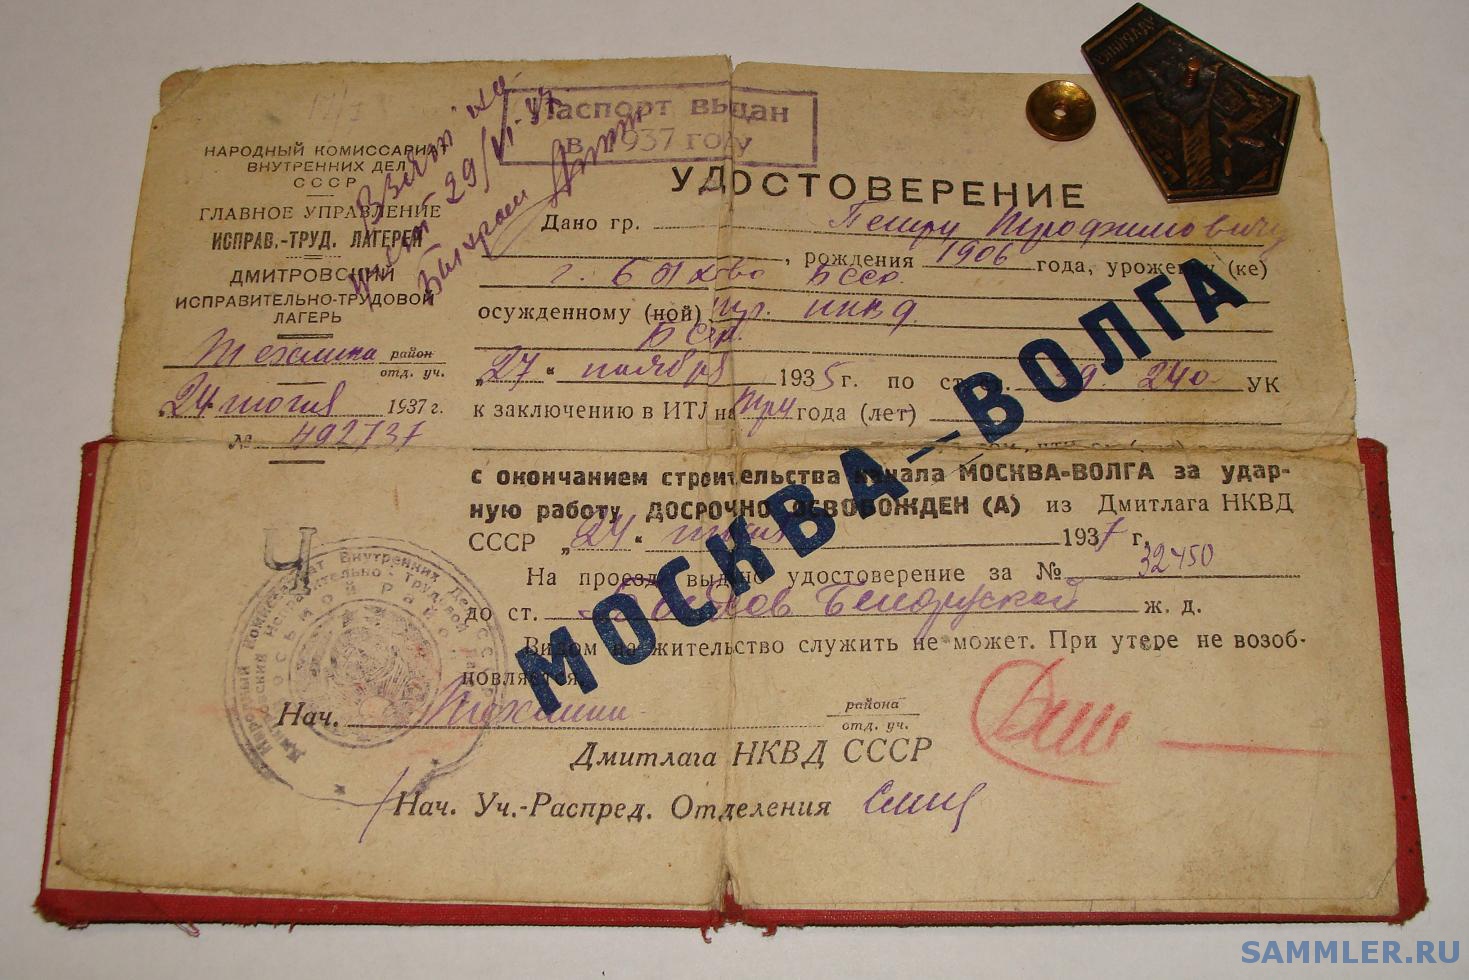 НАРОДНЫЙ КОМИССАРИАТ
ВНУТРЕННИХ ДЕЛ
СССР
ГЛАВНОЕ УПРАВЛЕНИЕ
ИСПРАВ.-ТРУД. ЛАГЕРЕЙ
ДМИТРОВСКИЙ
ИСПРАВИТЕЛЬНО-ТРУДОВОЙ
ЛАГЕРЬ
район
отд. уч.
24 июня 1937 г.
№ 492737
29/VI-37
Паспорт выдан
в 1937 году
УДОСТОВЕРЕНИЕ
Дано гр. Петру Трофимовичу
, рождения 1906 года, уроженцу (ке)
БССР.
осужденному (ной) НКВД
БССР.
„27“ ноября 1935 г. по ст. ст. 240 УК
к заключению в ИТЛ на три года (лет)
с окончанием строительства канала МОСКВА-ВОЛГА за удар-
ную работу ДОСРОЧНО ОСВОБОЖДЕН (А) из Дмитлага НКВД
СССР „24“ июня 1937 г.
На проезд выдано удостоверение за № 32450
до ст. Быхов Белорусской ж. д.
Видом на жительство служить не может. При утере не возоб-
новляется.
Нач. района
отд. уч.
Дмитлага НКВД СССР
Нач. Уч.-Распред. Отделения
МОСКВА—ВОЛГА
Ч
Народный Комиссариат Внутренних Дел СССР
Дмитровский Исправительно-Трудовой
SAMMLER.RU